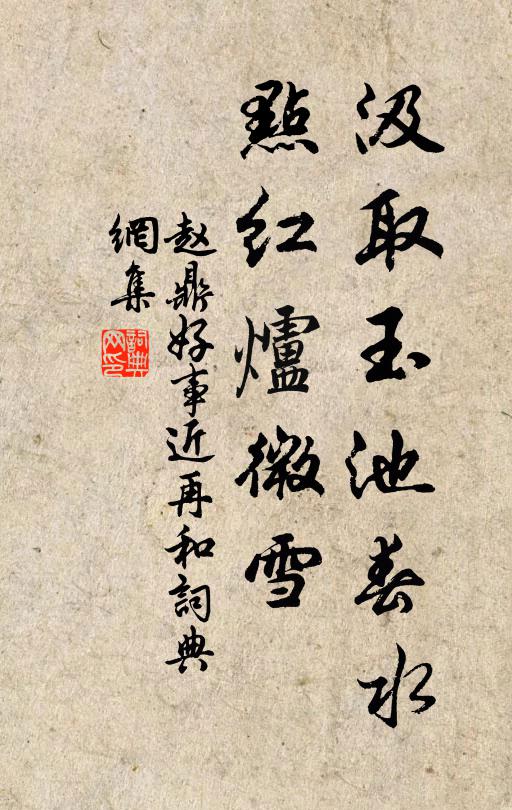 汲取玉池春水
點红爐微雪
赵鼎好事近再和詞典
網集
詞典
网印